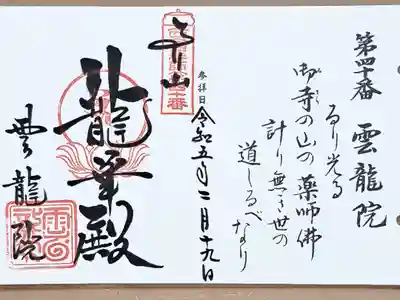 第四十番 雲龍院
るり光る
御寺の山の薬師佛
計り無き世の
道しるべなり
参拝日
令和五年二月十九日
るり山
龍華殿
雲龍院